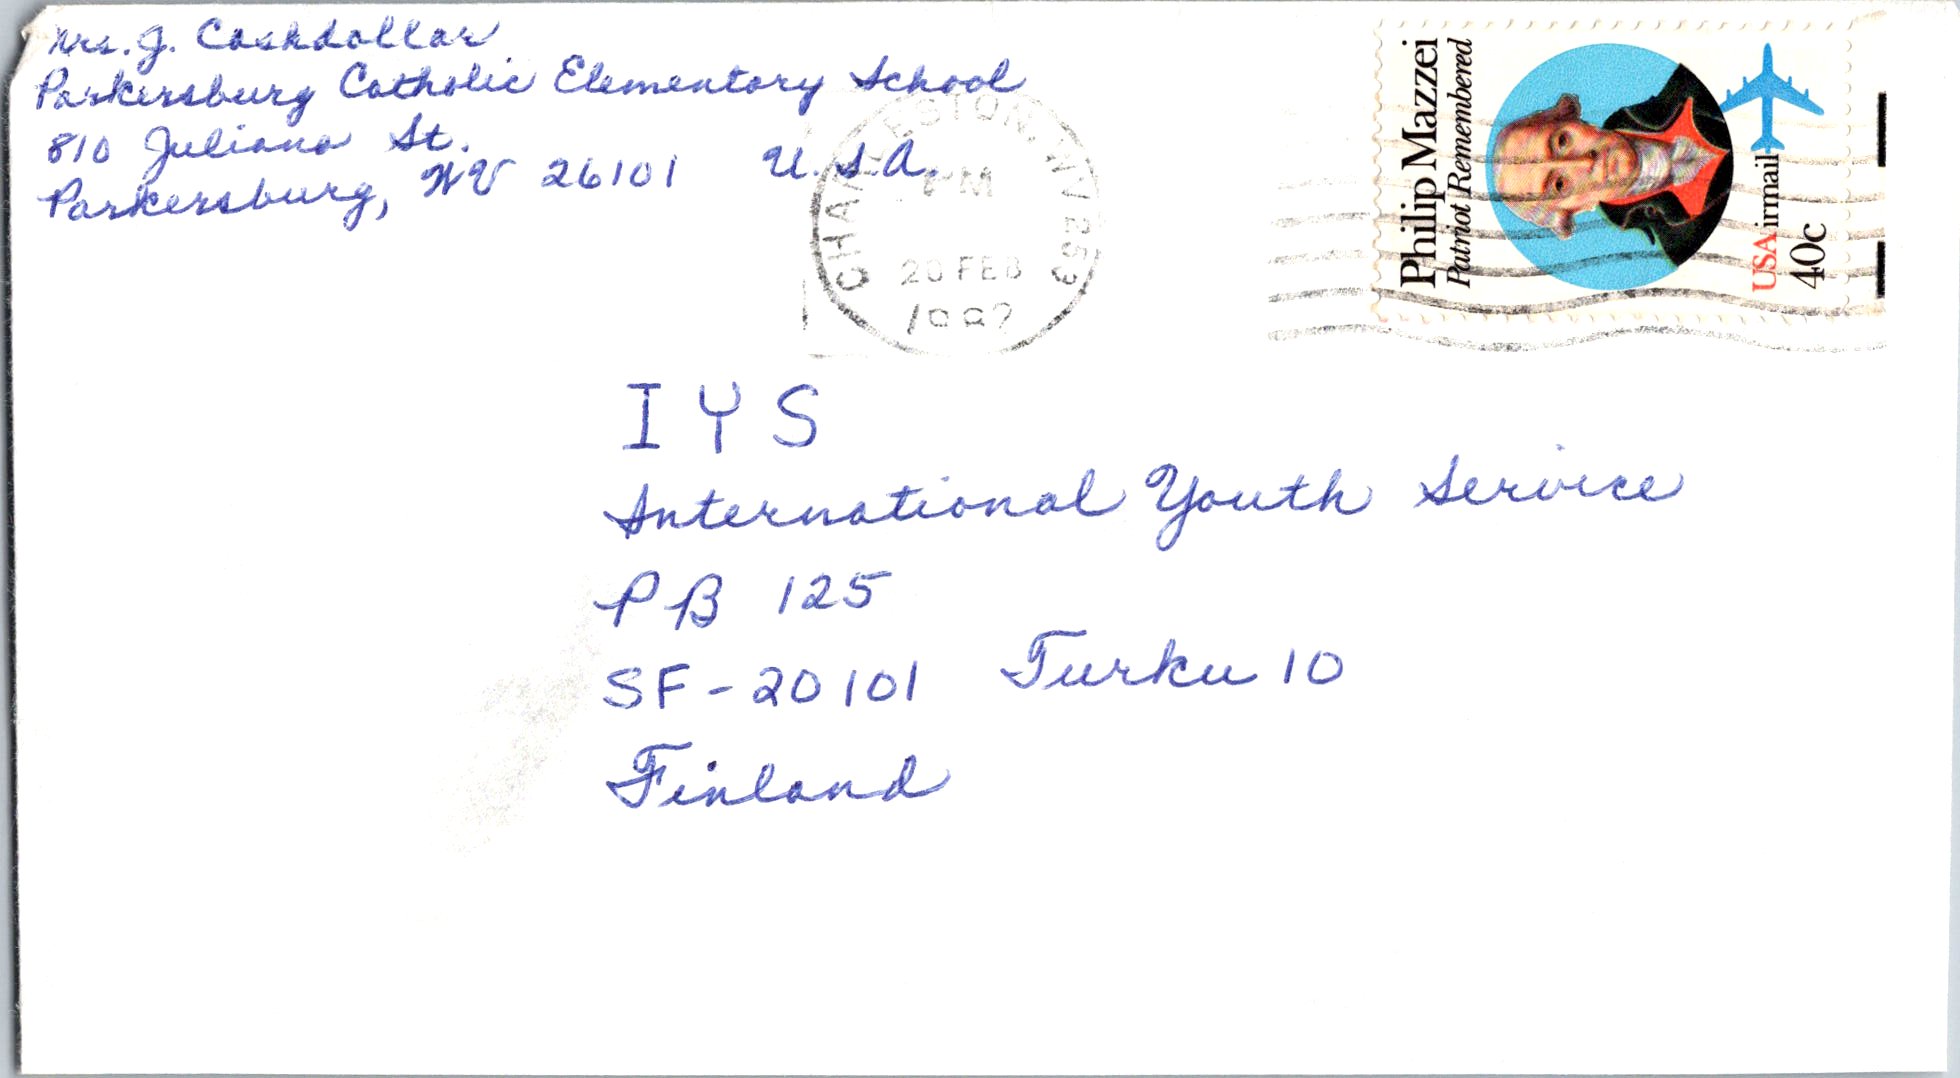 Mrs. J. Cashdollar
Parkersburg Catholic Elementary School
810 Juliana St.
Parkersburg, WV 26101 U.S.A.
CHARLESTON, WV 253
PM
20 FEB
Philip Mazzei
Patriot Remembered
USAirmail
40c
I Y S
International Youth Service
PB 125
SF-20101 Turku 10
Finland